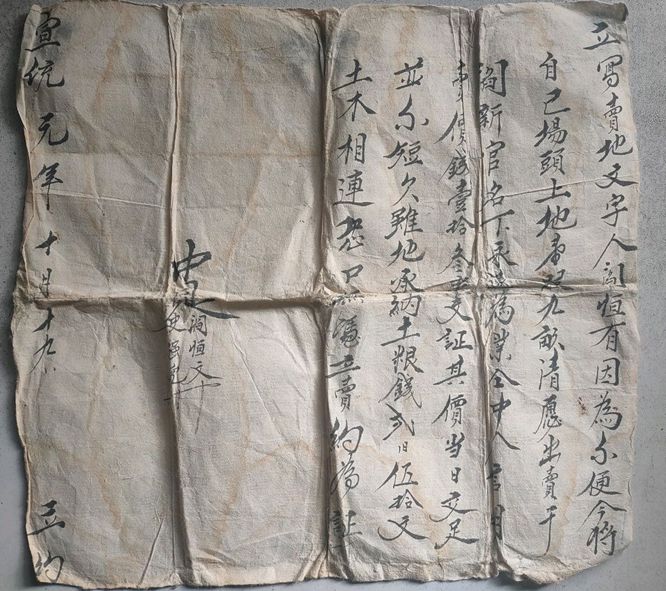 立寫賣地文字人閻恒有因為尓便今將
自己場頭上地九畝清愿出賣于
閻新官名下承為業仝中人言明
賣價錢壹拾叁文証其價當日交足
並尓短欠雖地承納土粮錢弍伯伍拾文
土木相連恐口無憑立賣約為証
中見
閻恒文十
宣統元年十月十九 立約